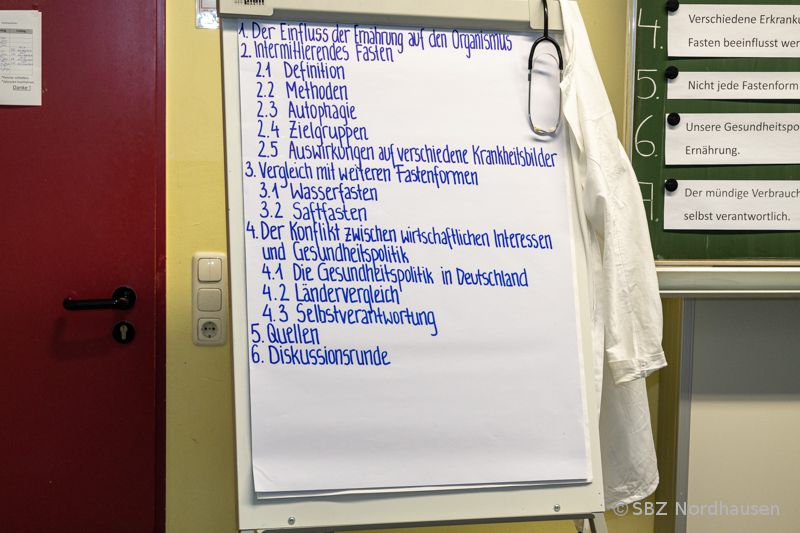 1. Der Einfluss der Ernährung auf den Organismus
2. Intermittierendes Fasten
2.1 Definition
2.2 Methoden
2.3 Autophagie
2.4 Zielgruppen
2.5 Auswirkungen auf verschiedene Krankheitsbilder
3. Vergleich mit weiteren Fastenformen
3.1 Wasserfasten
3.2 Saftfasten
4. Der Konflikt zwischen wirtschaftlichen Interessen
und Gesundheitspolitik
4.1 Die Gesundheitspolitik in Deutschland
4.2 Ländervergleich
4.3 Selbstverantwortung
5. Quellen
6. Diskussionsrunde
4. Verschiedene Erkranku
Fasten beeinflusst wer
5. Nicht jede Fastenform
6. Unsere Gesundheitspo
Ernährung.
7. Der mündige Verbrauch
selbst verantwortlich.
Danke!
© SBZ Nordhausen